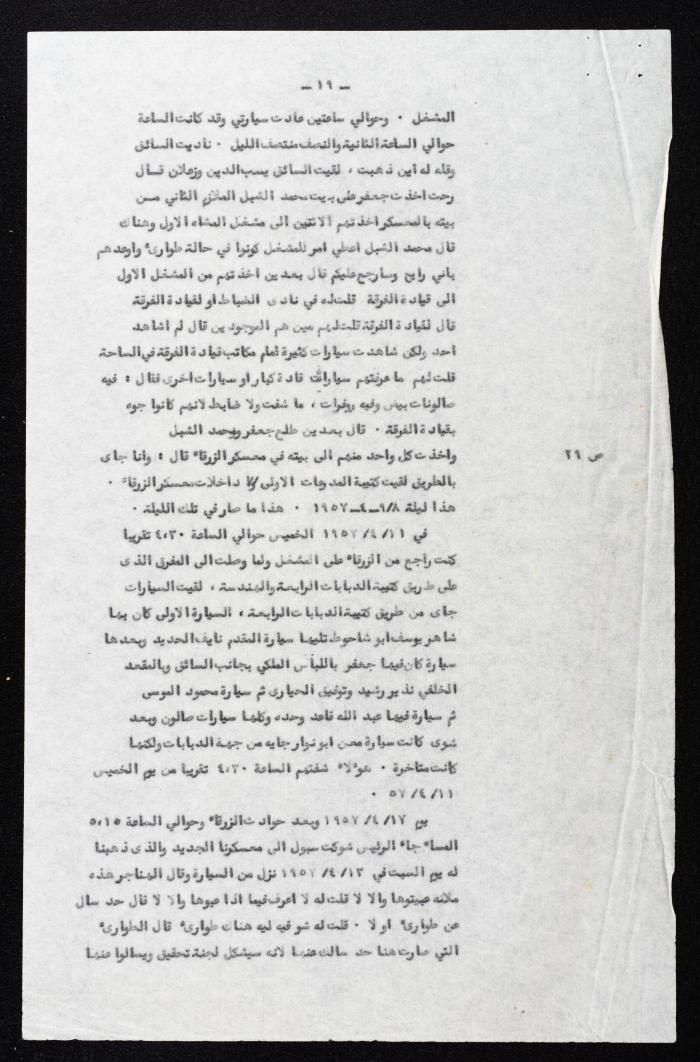 ـ ١٩ ـ
المشغل ٠ وحوالي ساعتين عادت سيارتي وقد كانت الساعة
حوالي الساعة الثانية والنصف منتصف الليل ٠ ناديت السائق
وقله له اين ذهبت ، لقيت السائق يسب الدين وزعلان قسال
رحت اخذت جعفر على بيت محمد الشبل الملازم الثاني مسن
بيته بالمعسكر اخذتهم الاثنين الى مشغل المشاه الاول وهناك
قال محمد الشبل اعطي امر للمشغل كونوا في حالة طوارئ واوعدهم
باني رايح وسارجع عليكم قال بعدين اخذتهم من المشغل الاول
الى قيادة الفرقة قلتله في نادى الضباط او لقيادة الفرقة
قال لقيادة الفرقة قلتلهم مين هم الموجودين قال لم اشاهد
احد ولكن شاهدت سيارات كثيرة امام مكاتب قيادة الفرقة في الساحة
قلت لهم ما عرفتهم سيارات قادة كبار او سيارات اخرى فقال : فيه
صالونات بيض وفيه روفرات ، ما شفت ولا ضابط لانهم كانوا جوه
بقيادة الفرقة ٠ قال بعدين طلع جعفر ومحمد الشبل
واخذت كل واحد منهم الى بيته في معسكر الزرقاء قال : وانا جاى
ص ٢٩
بالطريق لقيت كتيبة المدرعات الاولى داخلات معسكر الزرقاء ٠
هذا ليلة ٩/٨ـ٤ـ١٩٥٧ ٠ هذا ما صار في تلك الليلة ٠
في ١١/ ٤/ ١٩٥٧ الخميس حوالي الساعة ٤،٣٠ تقريبا
كنت راجع من الزرقاء على المشغل ولما وصلت الى المفرق الذى
على طريق كتيبة الدبابات الرابعة والهندسة ، لقيت السيارات
جاى من طريق كتيبة الدبابات الرابعة ، السيارة الاولى كان بها
شاهر يوسف ابو شاحوط تليها سيارة المقدم نايف الحديد وبعدها
سيارة كان فيها جعفر باللباس الملكي بجانب السائق وبالمقعد
الخلفي نذير رشيد وتوفيق الحيارى ثم سيارة محمود الموسى
ثم سيارة فيها عبد الله قاعد وحده وكلها سيارات صالون وبعد
شوى كانت سيارة معن ابو نوار جايه من جهة الدبابات ولكنها
كانت متاخرة ٠ هوءلاء شفتهم الساعة ٤،٣٠ تقريبا من يوم الخميس
١١/ ٤/ ٥٧ ٠
يوم ١٧/ ٤/ ١٩٥٧ وبعد حوادث الزرقاء وحوالي الساعة ٥،١٥
المساء جاء الرئيس شوكت سبول الى معسكرنا الجديد والذى ذهبنا
له يوم السبت في ١٣/ ٤/ ١٩٥٧ نزل من السيارة وقال الهناجر هذه
ملانه عبيتوها والا لا قلت له لا اعرف فيما اذا عبوها والا لا قال حد سال
عن طوارئ او لا ٠ قلت له شو فيه ليه هناك طوارئ قال الطوارئ
التي صارت هنا حد سالك عنها لانه سيشكل لجنة تحقيق ويسالوا عنها